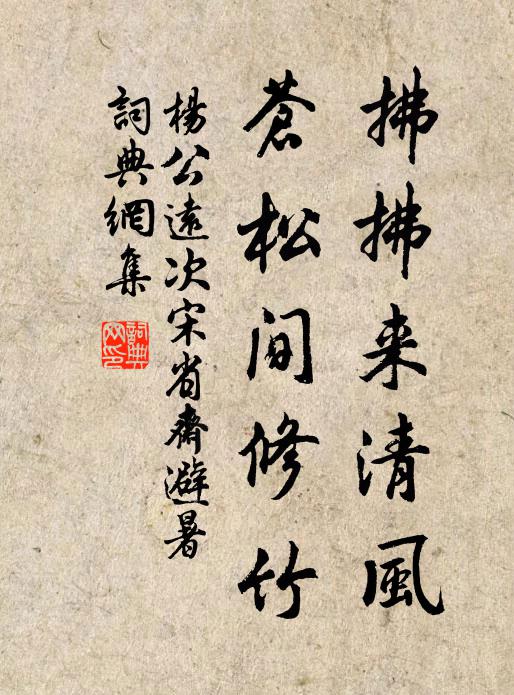 拂拂来清風
蒼松間修竹
楊公遠次宋省齋避暑
詞典網集
詞典網印